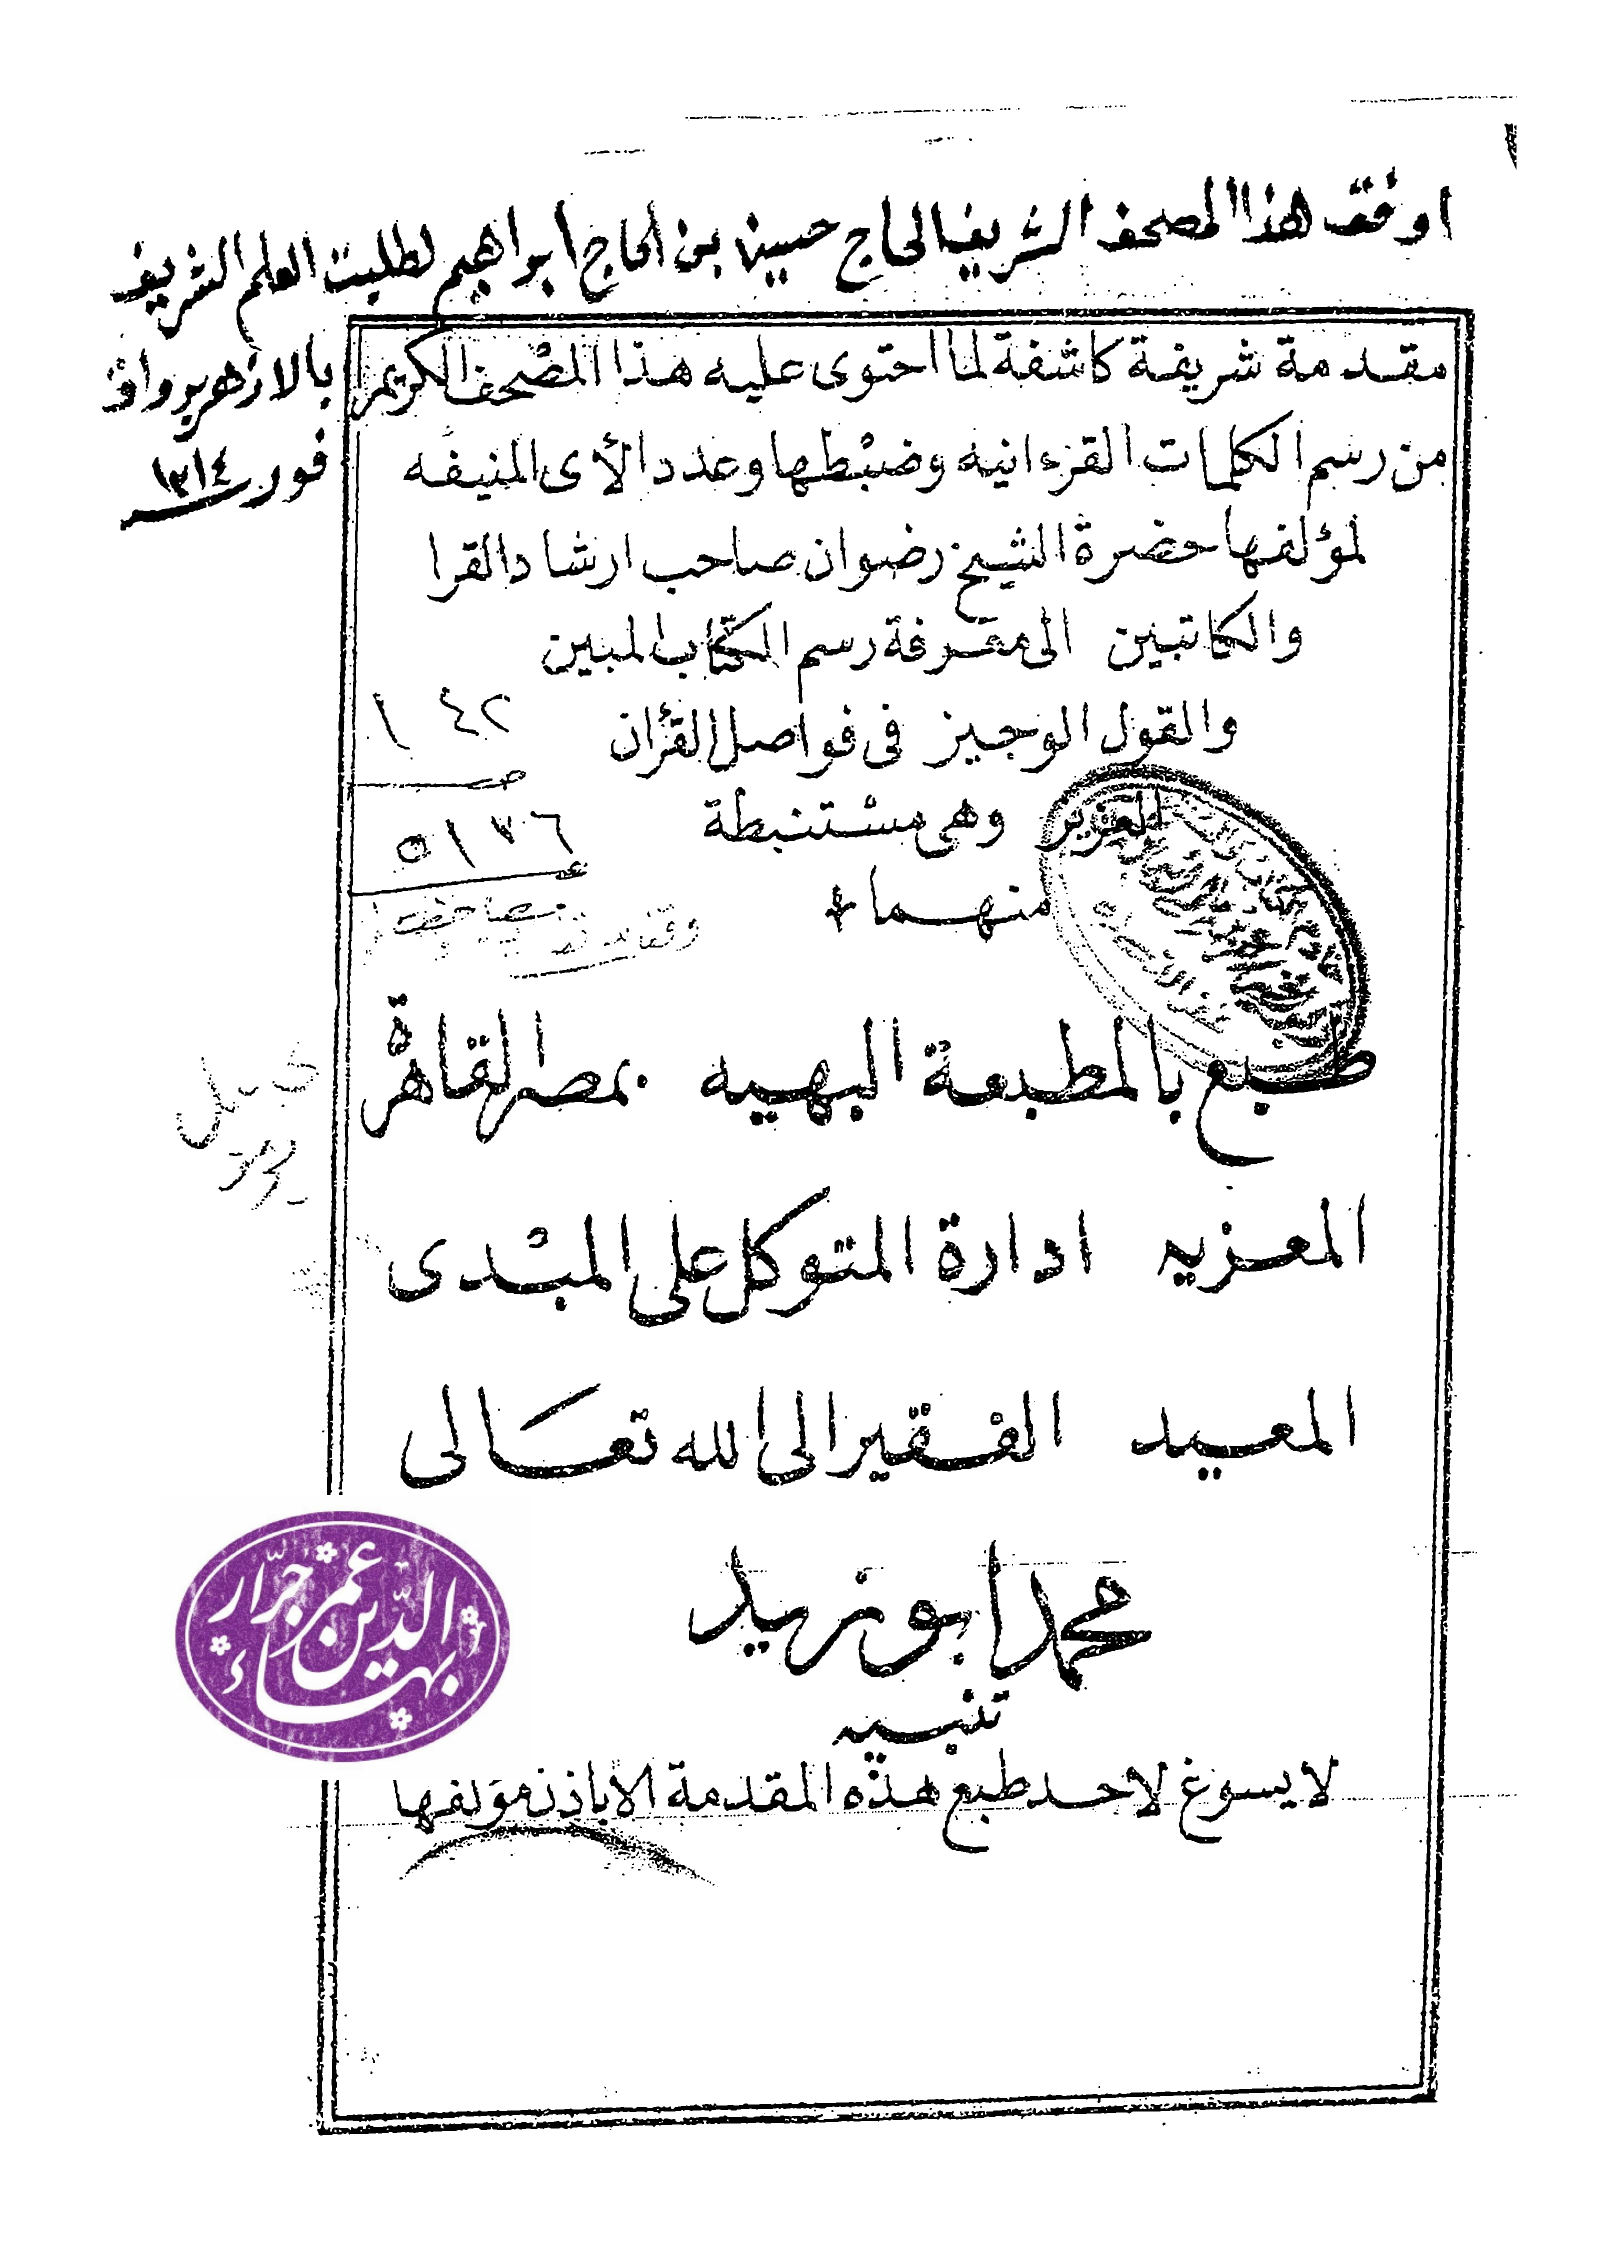 اوقف هذا المصحف الشريف الحاج حسين بن الحاج ابراهيم لطلبت العلم الشريف
بالازهر برواق
فور ١٣١٤
مقدمة شريفة كاشفة لما احتوى عليه هذا المصْحف الكريم
من رسم الكلمات القرءانيه وضبْطها وعدد الأى المنيفه
لمؤلفها حضرة الشيخ رضوان صاحب ارشاد القرا
والكاتبين الى معرفة رسم الكتاب المبين
والقول الوجيز فى فواصل القرأن
العزيز وهى مسْتنبطة
منهما
٤٢ ١
٥١٧٦
طبع بالمطبعة البهيه بمصر القاهرة
المعزيه ادارة المتوكل على المبْدى
المعيد الفقير الى الله تعَالى
محمد ابو زيد
تنبيه
لا يسوغ لاحد طبع هذه المقدمة الا باذن مؤلفها
بهاء الدّين عمر جرّار